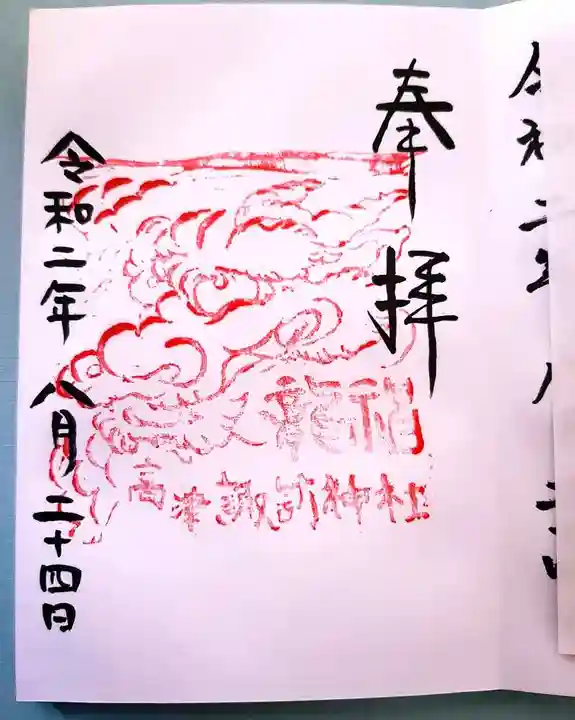 奉拝
龍神
高津諏訪神社
令和二年 八月二十四日
令和二年 八